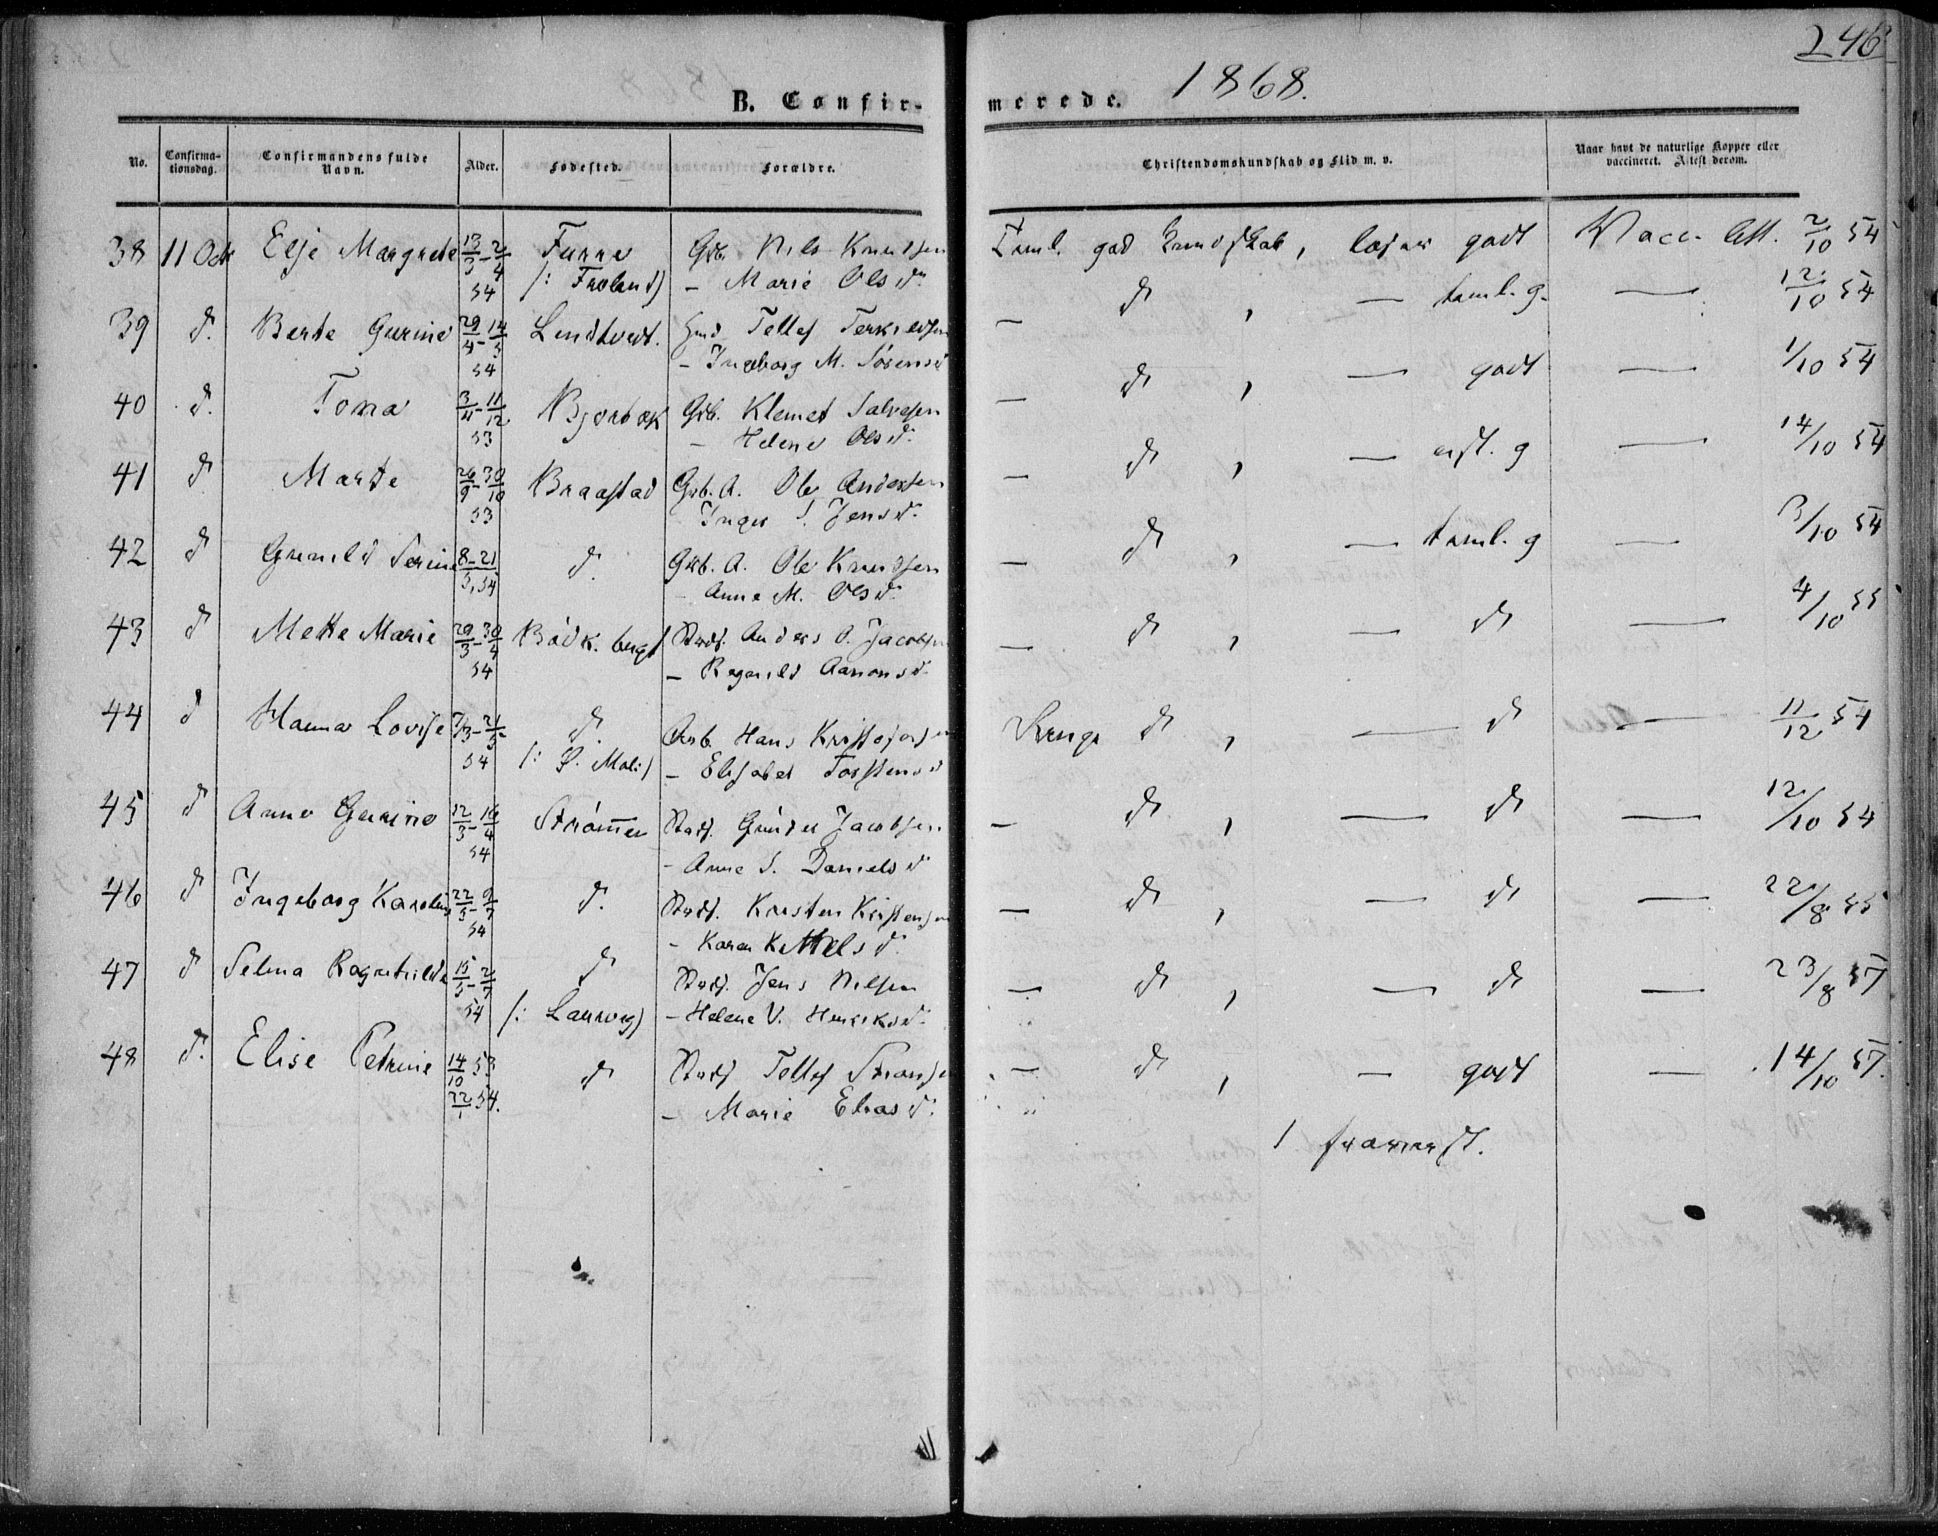 246
B. Confirmerede. 1868.
No. Confirmationsdag. Confirmandens fulde Navn. Alder. Fødested. Forældre. Christendomskundskab og Flid m. v. Naar havt de naturlige Kopper eller vaccineret. Attest derom.
38 11 Octr Elje Margrete 13/3 - 2/4 54 Furre Grb. Nils Knudsen Taml. god Kundskab, læser godt Vacc. Att. 2/10 54
/: Froland) - Marie Olsd.
39 d. Berte Gurine 29/4 - 14/5 54 Lindtvedt. Tellef Terkeldsen — d , — taml. g. — 12/10 54
- Ingeborg M. Sørensd
40 d. Tona 3/11 - 11/12 53 Bjorbæk Grb. Klemet Salvesen — d , — godt — 1/10 54
- Helene Olsd.
41 d Marte 26/9 - 30/10 53 Braastad Grb. A. Ole Andersen — d , — g — 14/10 54
Inger S. Jensd.
42 d Gunild Serine 8 - 21/5, 54 d. Grb. A. Ole Knudsen — d , — taml. g — 3/10 54
Anne M. Olsd.
43 d Mette Marie 29/3 - 30/4 54 Bødk. bugt Strdf. Anders O. Jacobsen — d , — d — 4/10 55
- Ragnild Aanonsd.
44 d Hanna Lovise 7/3 - 21/5 54 d Arb. Hans Kristofersen d , — d — 11/12 54
- Elisabet Torstensd
45 d Anne Gurine 12/3 - 16/4 54 Strømmen Strdf. Gunder Jacobsen — d , — d — 12/10 54
- Anne S. Danielsd
46 d Ingeborg Karoline 22/5 - 9/7 54 d. Strdf. Kristen Kristensen — d , — d — 22/8 55
- Karen Kittelsd
47 d Selma Ragnhilda 15/5 - 2/7 54 d Strdf. Jens Nilsen — d , — d — 23/8 57
/: Laurvig) - Helene V. Henriksd.
48 d. Elise Petrine 14/10 53 22/1 54. d Strdf Tellef — d , — godt — 14/10 57.
- Marie Eliasd.
1